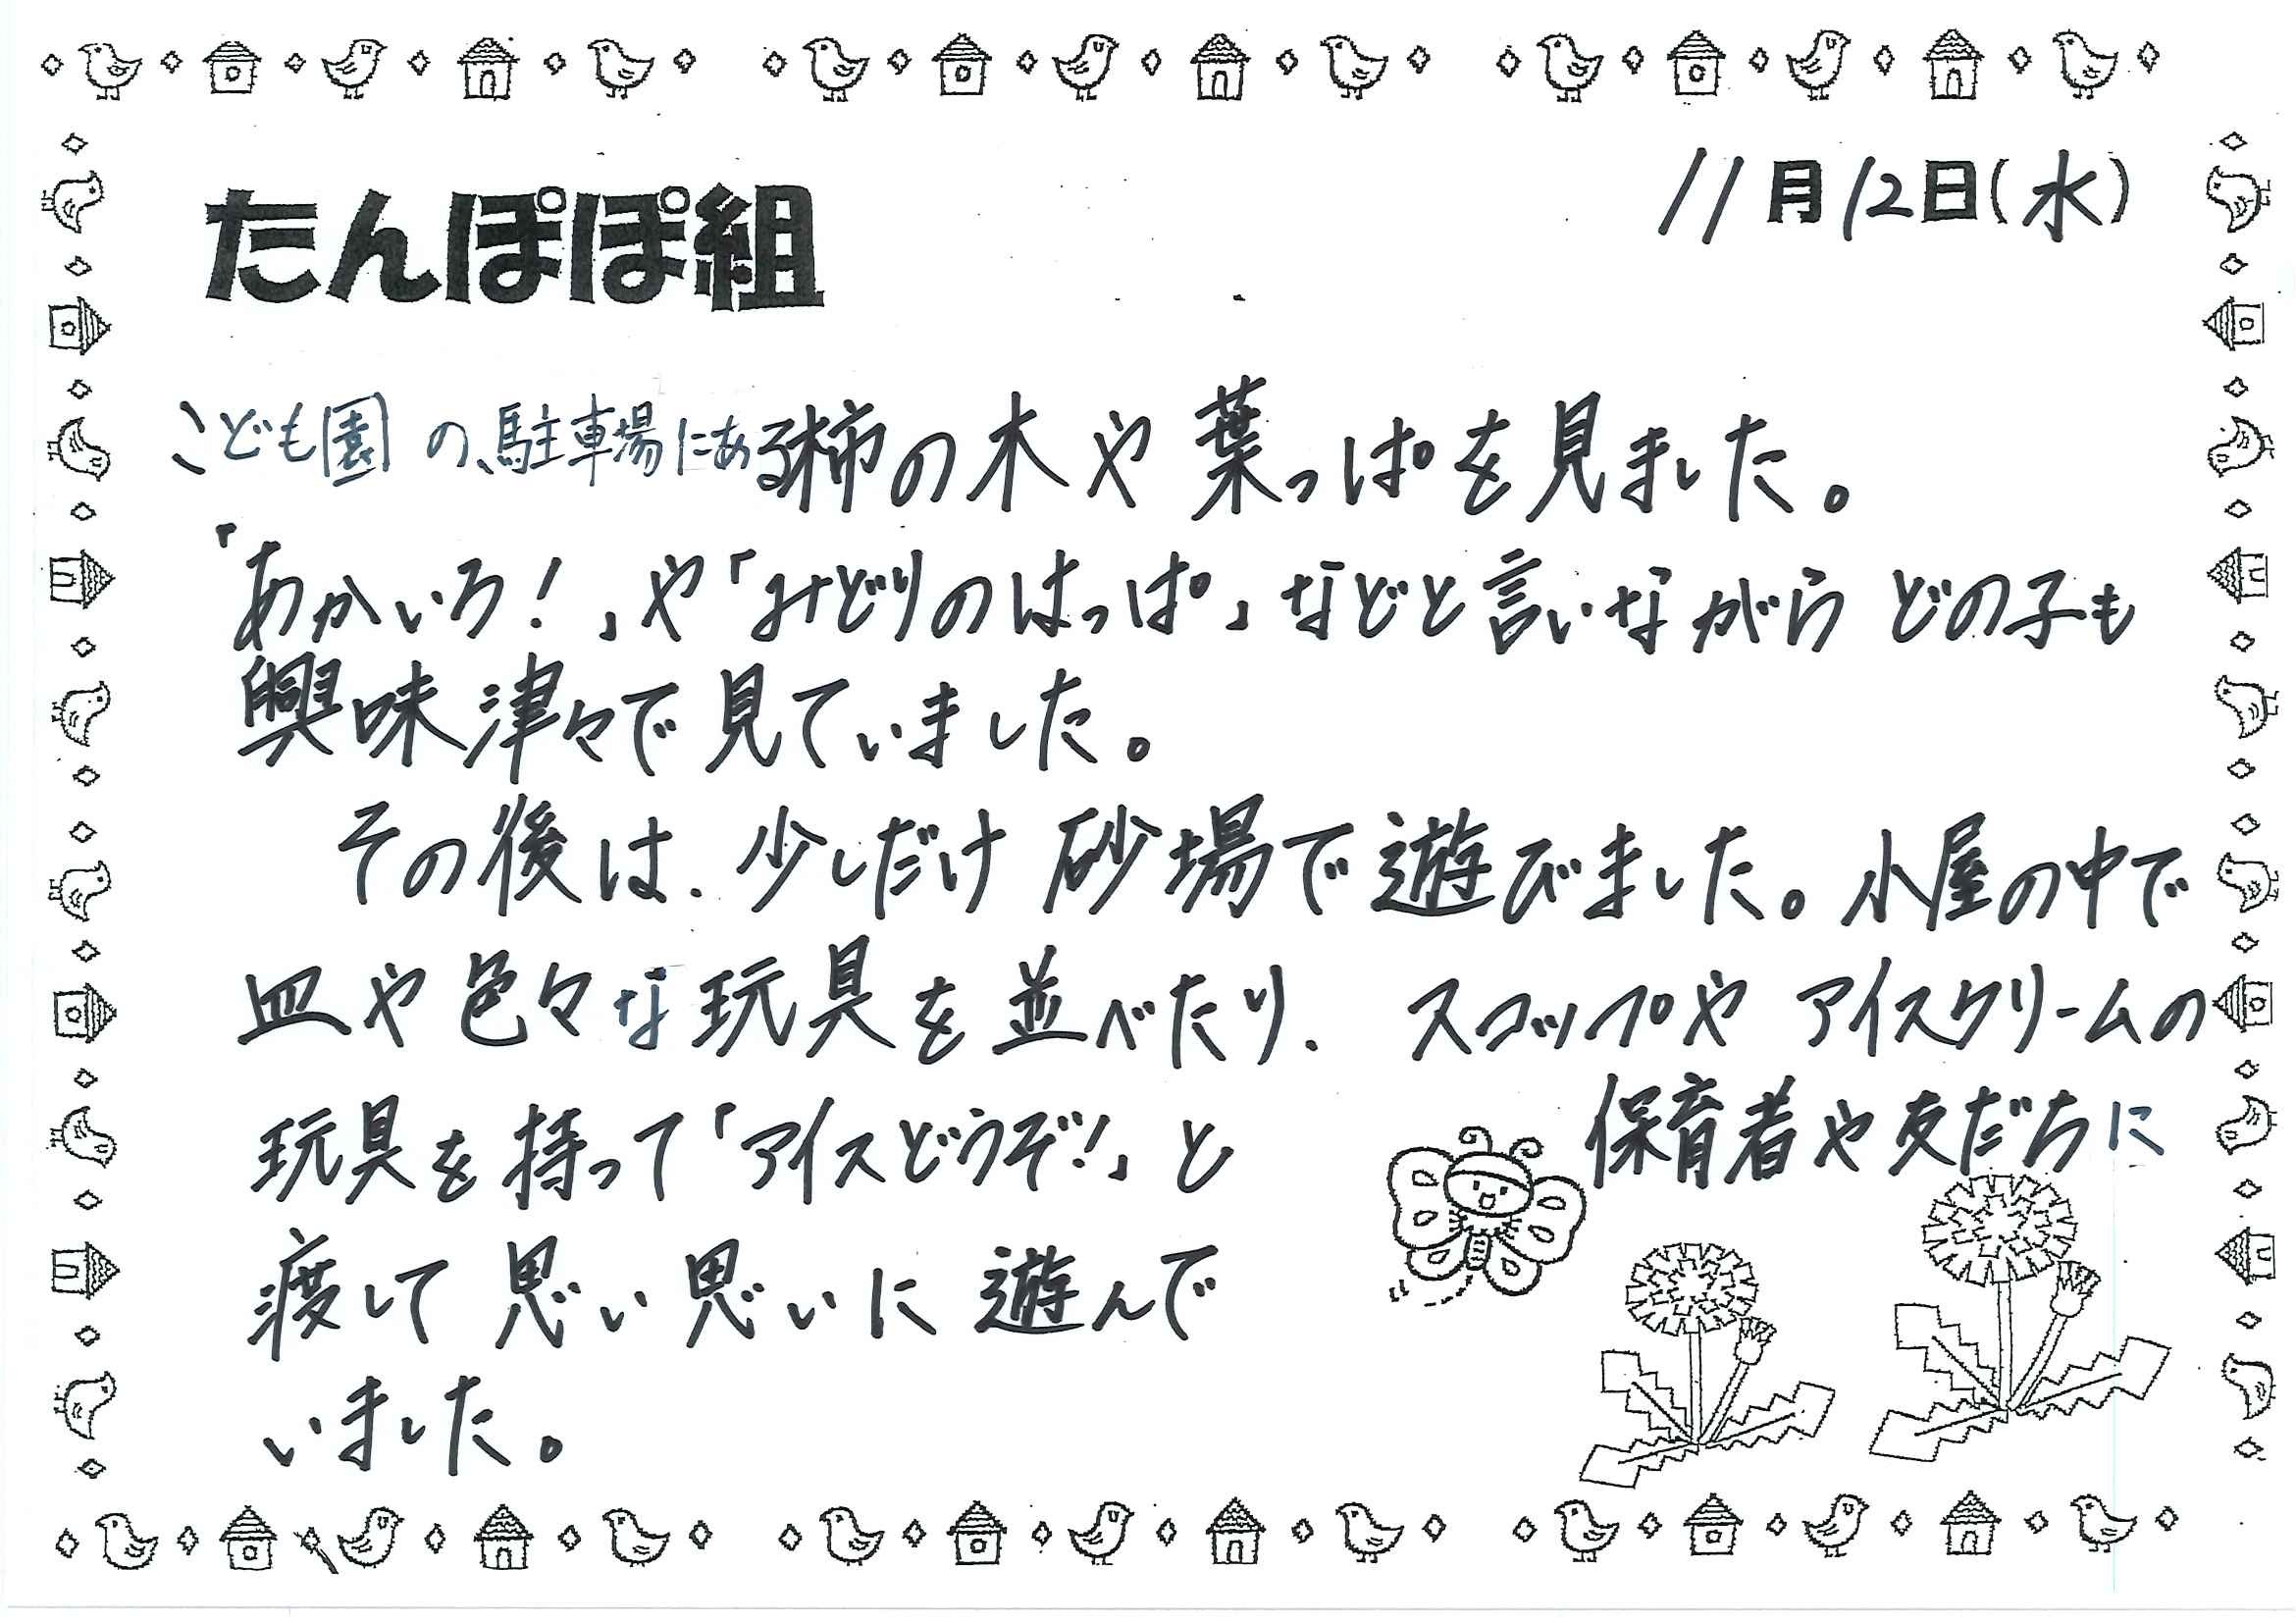 たんぽぽ組
11月12日(水)
こども園の駐車場にある柿の木や葉っぱを見ました。
「あかいろ!」や「みどりのはっぱ」などと言いながら どの子も
興味津々で見ていました。
その後は、少しだけ砂場で遊びました。小屋の中で
皿や色々な玩具を並べたり、スコップや アイスクリームの
玩具を持って「アイスどうぞ!」と 保育者や友だちに
渡して 思い思いに 遊んで
いました。